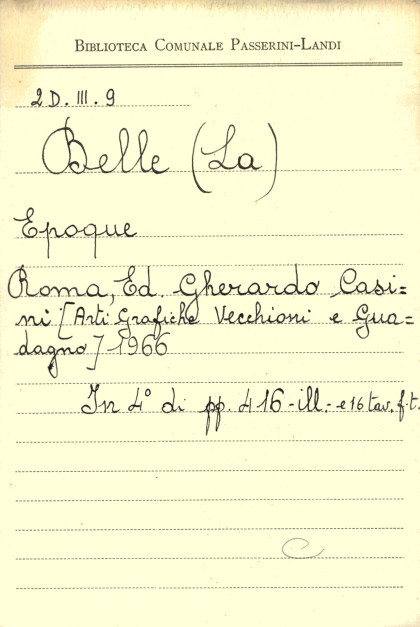 BIBLIOTECA COMUNALE PASSERINI-LANDI
2 D. III. 9
Belle (La)
Epoque
Roma, Ed. Gherardo Casi=
ni [Arti Grafiche Vecchioni e Gua=
dagno] 1966
In 4° di pp. 416 - ill. - e 16 tav. f. t.